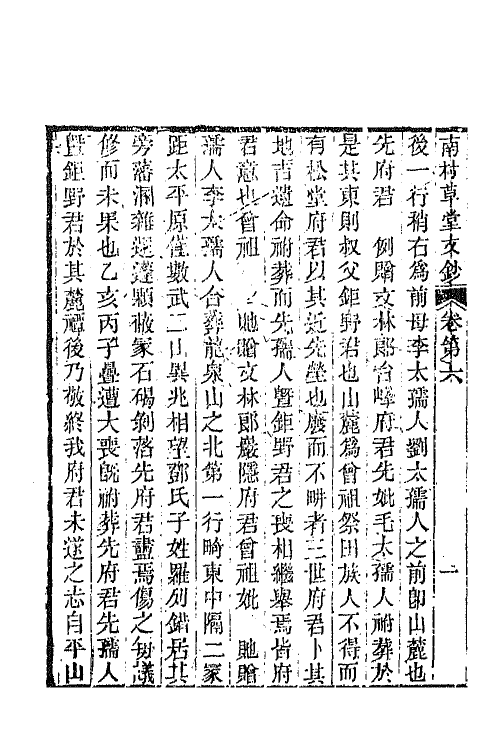 南村草堂文鈔 卷第六 一
後一行稍右為前母李太孺人劉太孺人之前卽山麓也
先府君 例贈文林郎台峰府君先妣毛太孺人祔葬於
是其東則叔父鉅野君也山麓為曾祖祭田族人不得而
有松堂府君以其近先塋也廢而不畊者三世府君卜其
地吉遺命祔葬而先孺人曁鉅野君之喪相繼舉焉皆府
君意也曾祖 貤贈文林郎嚴隱府君曾祖妣 貤贈
孺人李太孺人合葬龍泉山之北第一行畸東中隔二冢
距太平原僅數武二山異兆相望鄧氏子姓羅列錯居其
旁藩溷雜遝蓬顆蔽冢石碭剝落先府君盡焉傷之匆議
修而未果也乙亥丙子疊遭大喪旣祔葬先府君先孺人
曁鉅野君於其麓禫後乃敬終我府君未遂之志自平山